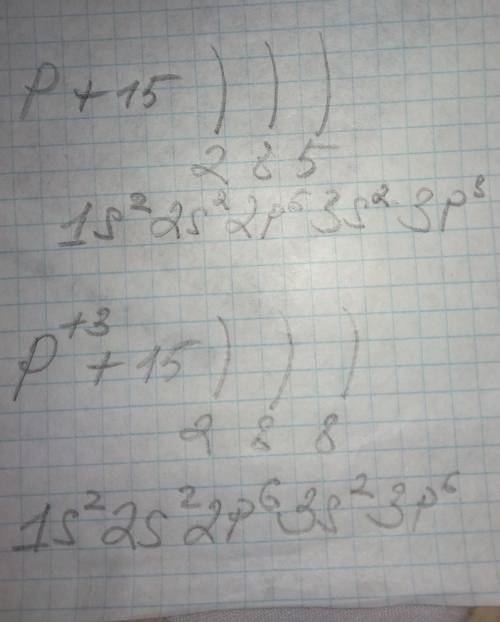 P +15 ) ) )
2 8 5
1s² 2s² 2p⁶ 3s² 3p³
P⁺³ +15 ) ) )
2 8 8
1s² 2s² 2p⁶ 3s² 3p⁶